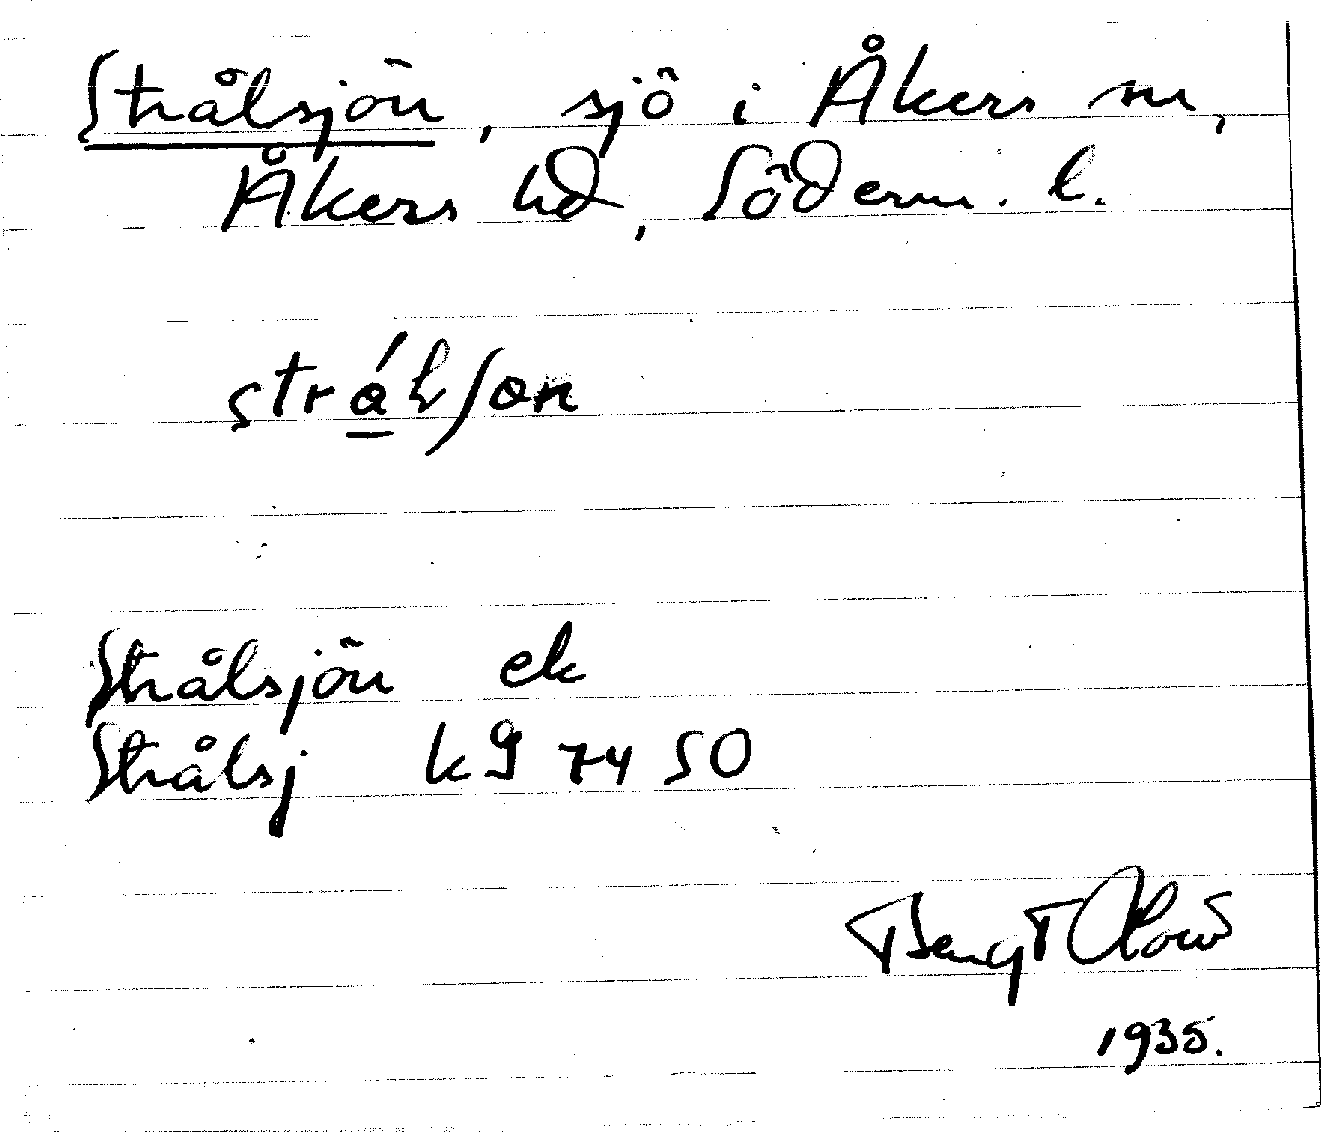 Strålsjön, sjö i Åkers sn,
Åkers hd, Söderm. l.
strálʃon
Strålsjön ek
Strålsj k 9 74 50
Bengt
1935.